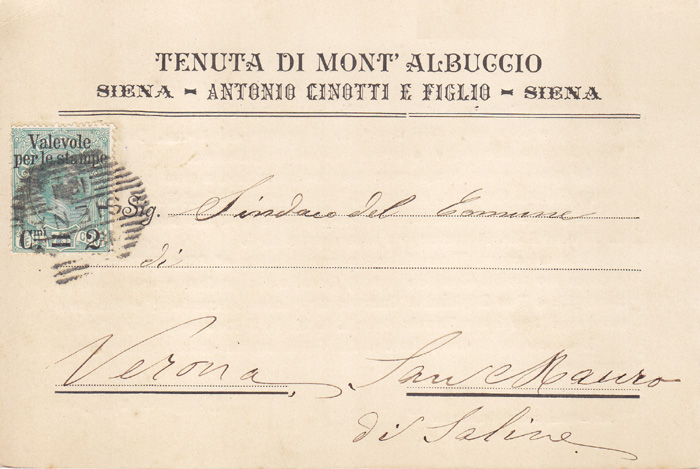 TENUTA DI MONT' ALBUCCIO
SIENA - ANTONIO CINOTTI E FIGLIO - SIENA
Valevole
per le stampe
Cmi 2
Sig. Sindaco del Comune
di
Verona San Mauro
di Saline